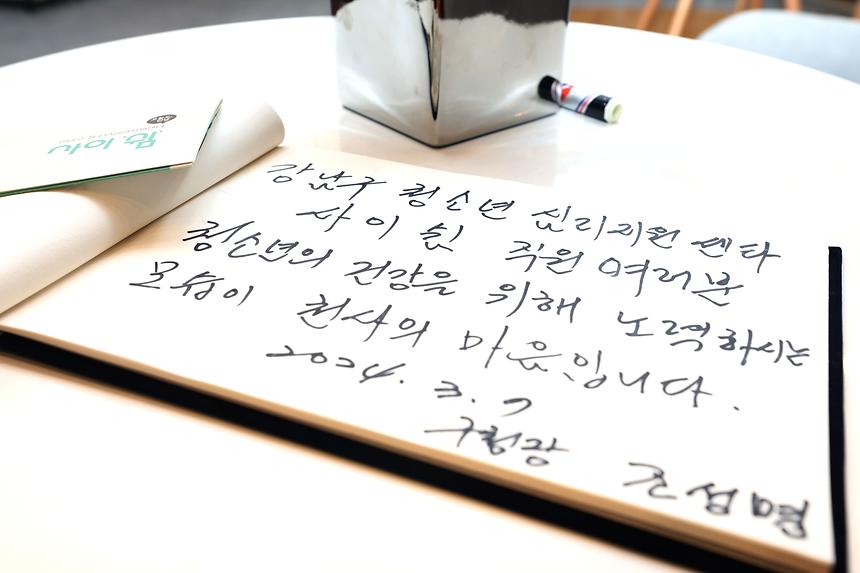 강남구 청소년 심리지원 센타
사이쉼 직원 여러분
청소년의 건강을 위해 노력하시는
모습이 천사의 마음입니다.
2024. 3. 7
구청장 조성명
사이쉼